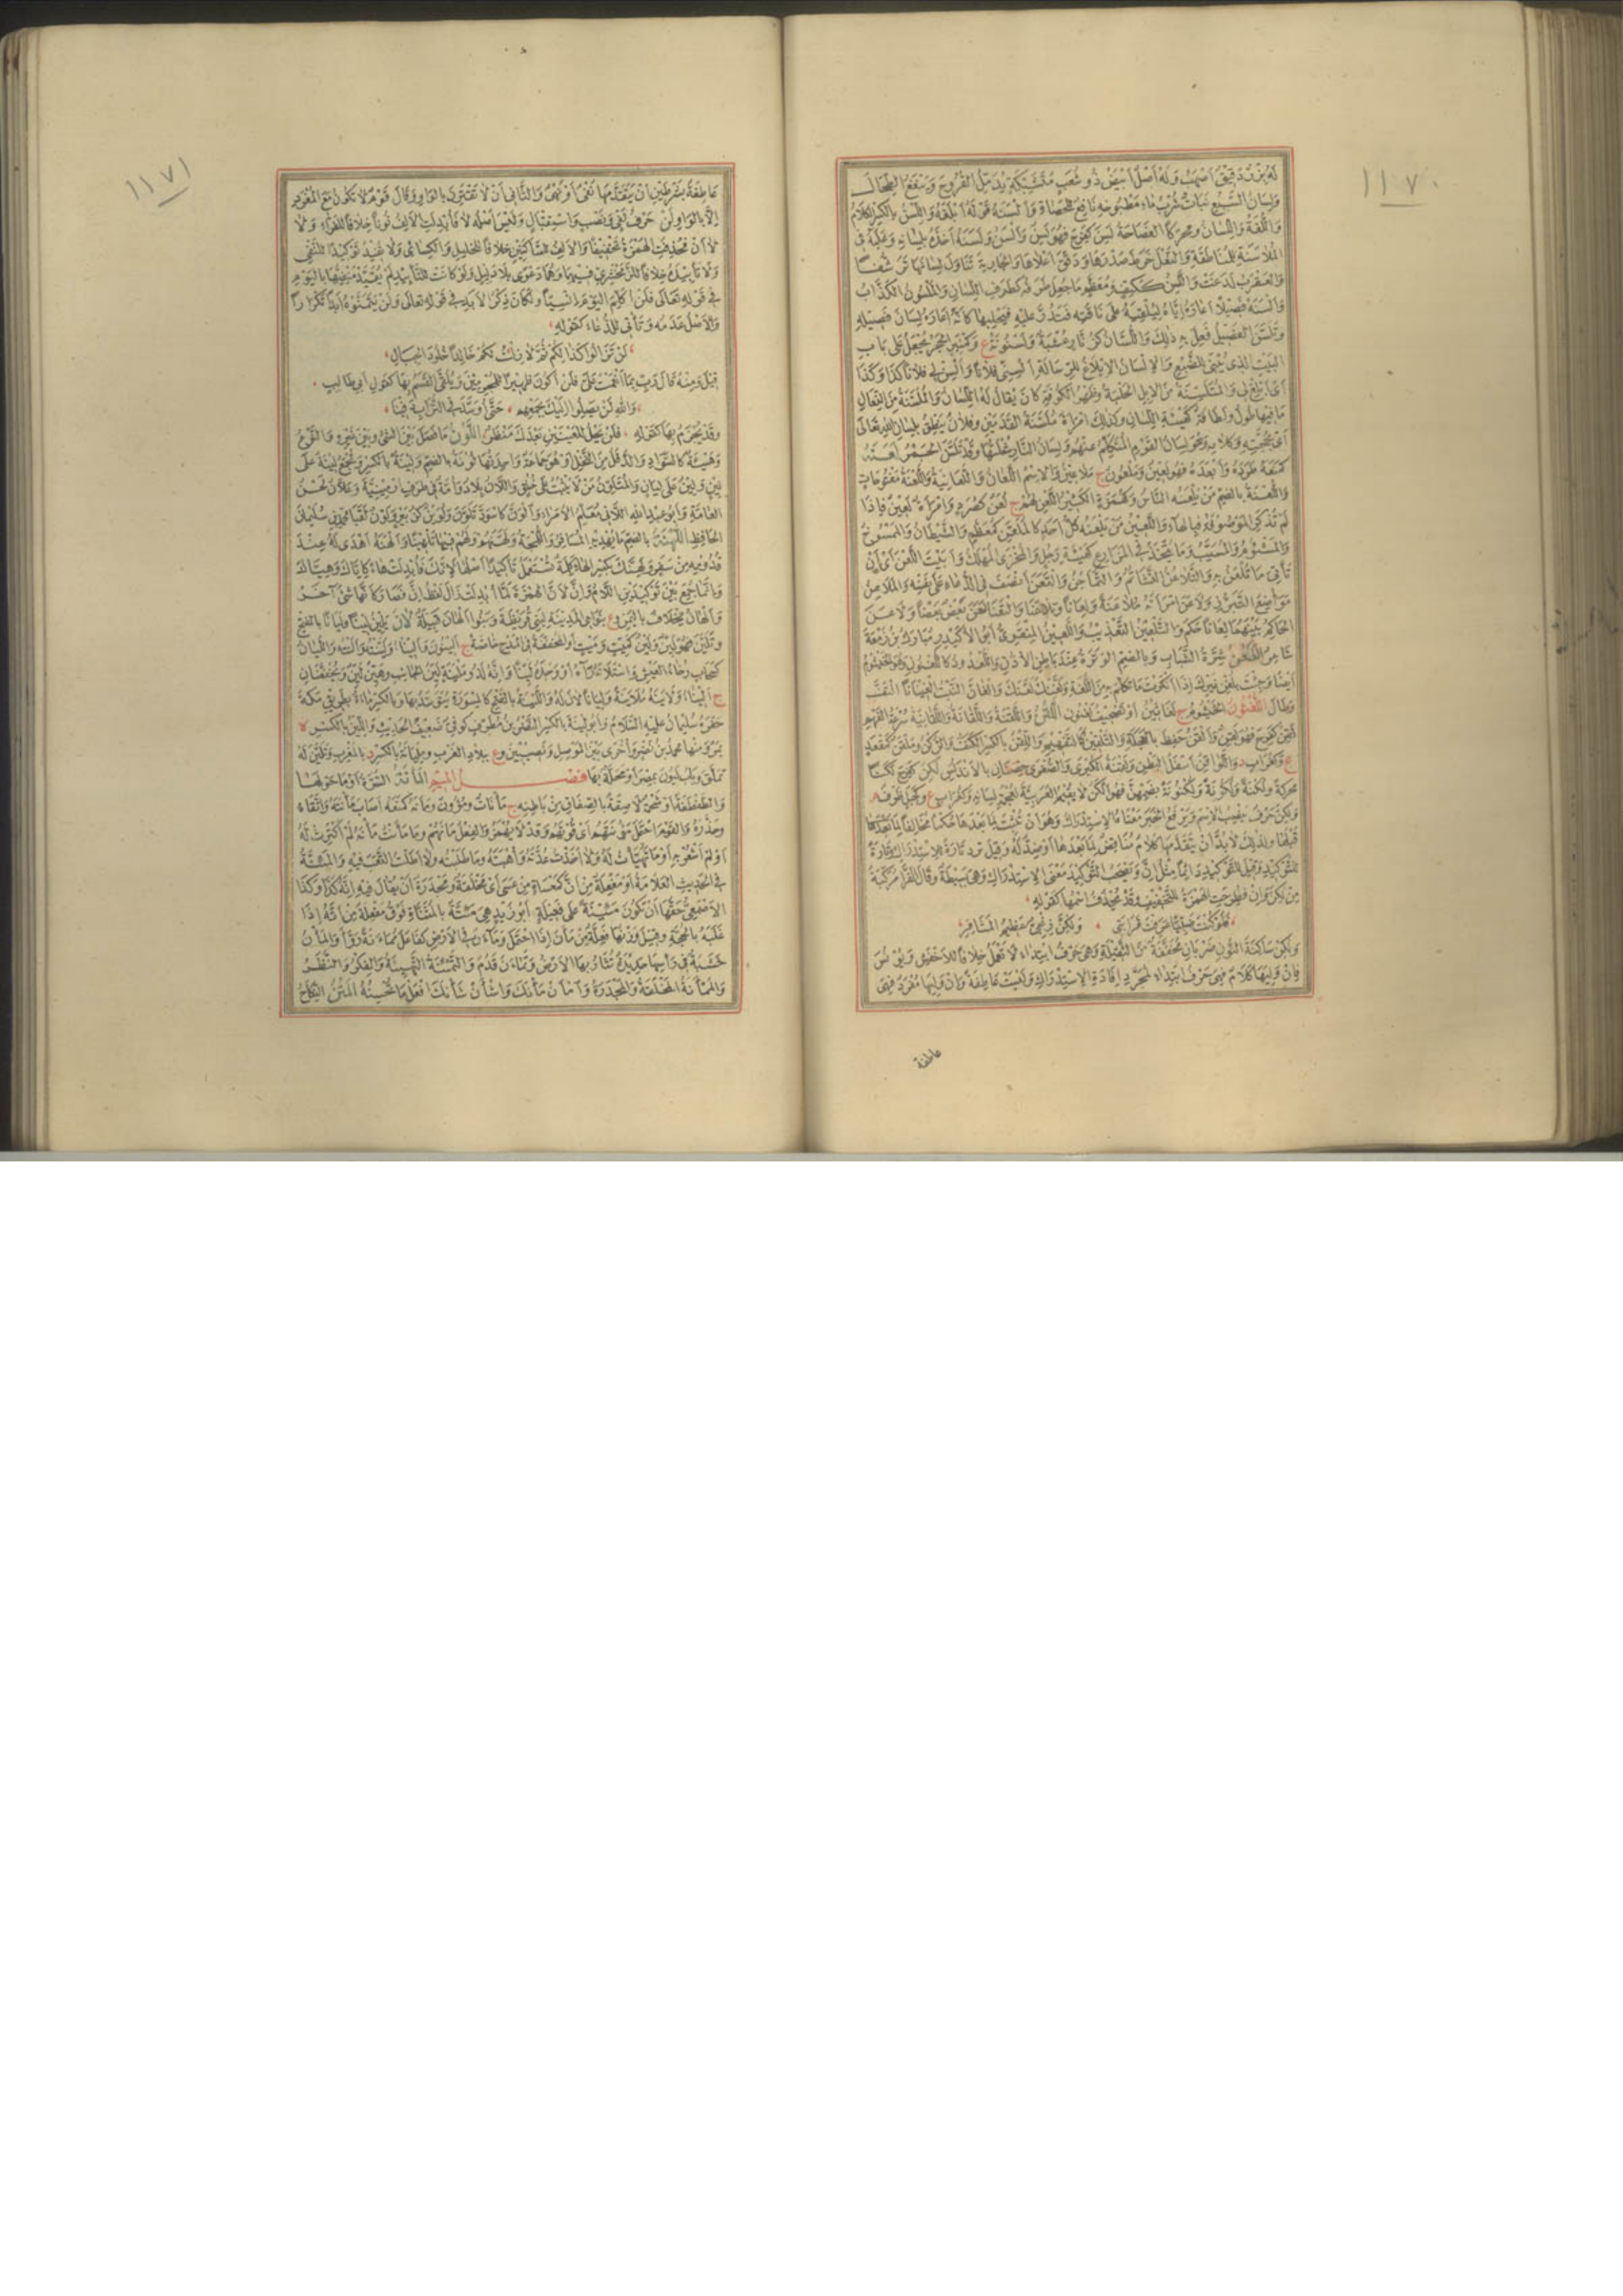 ١١٧٠
له بزر دقيق اصهب وله اصل ابيض ذو شعب متشبكة يدمل القروح وينفع الطحال
ولسان السبع نبات شرب ماء مطبوخه نافع للحصاة والسنه قوله ابلغه واللسن بالكسر الكلام
واللغة واللسان ومحركا الفصاحة لسن كفرح فهو لسن والسن ولسنه اخذه بلسانه وغلبه في
الملاسنة للمناطقة والنعل خرط صدرها ودقق اعلاها والجارية تناول لسانها ترشفا
والعقرب لدغت واللسن ككتف ومعظم ما جعل طرفه كطرف اللسان والملسون الكذاب
والسنه فصيلا اعاره اياه ليلقيه على ناقته فتدر عليه فيحلبها كانه اعاره لسان فصيله
وتلسن الفصيل فعل به ذلك واللسان كزنار عشبة ولسنونة ع وكمنبر الحجر يجعل على باب
البيت الذي يبنى للضبع والالسان الابلاغ للرسالة السني فلانا والسن لي فلانا كذا وكذا
اي ابلغ لي والمتلسنة من الابل الخلية وظهر الكوفة كان يقال له اللسان والملسنة من النعال
ما فيها طول ولطافة كهيئة اللسان وكذلك امراة ملسنة القدمين وفلان ينطق بلسان الله تعالى
اي بحجته وكلامه وهو لسان القوم المتكلم عنهم ولسان النار شعلتها وقد تلسن الجمر لعنه
كمنعه طرده وابعده فهو لعين وملعون ج ملاعين والاسم اللعان واللعانية واللعنة مفتوحات
واللعنة بالضم من يلعنه الناس وكهمزة الكثير اللعن لهم ج لعن كصرد وامراة لعين فاذا
لم تذكر الموصوفة فبالهاء واللعين من يلعنه كل احد كالملعن كمعظم والشيطان والممسوخ
والمشئوم والمسيب وما يتخذ في المزارع كهيئة رجل والمخزى المهلك وابيت اللعن اي ان
تاتي ما تلعن به والتلاعن التشاتم والتماجن والتعن انصف في الدعاء على نفسه والملاعن
مواضع التبرز ولاعن امراته ملاعنة ولعانا وتلاعنا والتعنا لعن بعض بعضا ولاعن
الحاكم بينهما لعانا حكم والتلعين التعذيب واللعين المنقري ابو الاكيدر مبارك بن زمعة
شاعر اللغن شرة الشباب وبالضم الوترة عند باطن الاذن واللغد ودكاللغنون وهو الخيشوم
ايضا وجئت بلغن غيرك اذا انكرت ما تكلم به من اللغة ولغنك لغة في لعلك والغان النبت الغينانا التف
وطال اللغنون الخيشوم ج لغانين او تصحيف لغنون اللقن واللقنة واللقانة واللقانية سرعة الفهم
لقن كفرح فهو لقن والقن حفظ بالعجلة والتلقين كالتفهيم واللقن بالكسر الكنف والركن وملقن كمقعد
ع وكغراب د واللواقن اسفل البطن ولقنة الكبرى والصغرى حصنان بالاندلس لكن كفرح لكنا
محركة ولكنة ولكونة ولكنونة بضمهن فهو الكن لا يقيم العربية لعجمة لسانه وكغراب ع وكجبل ظرف م
ولكن حرف ينصب الاسم ويرفع الخبر معناها الاستدراك وهو ان تثبت لما بعدها حكما مخالفا لما قبلها
قبلها ولذلك لا بد ان يتقدمها كلام مناقض لما بعدها او ضد له وقيل ترد تارة للاستدراك وتارة
للتوكيد وقيل للتوكيد دائما مثل ان ويصحب التوكيد معنى الاستدراك وهي بسيطة وقال الفراء مركبة
من لكن وان فطرحت الهمزة للتخفيف وقد يحذف اسمها كقوله
فلو كنت ضبيا عرفت قرابتي ولكن زنجي عظيم المشافر
ولكن ساكنة النون ضربان مخففة من الثقيلة وهي حرف ابتداء لا تعمل خلافا للاخفش ويونس
فان وليها كلام فهي حرف ابتداء لمجرد افادة الاستدراك وليست عاطفة وان وليها مفرد فهي
عاطفة
١١٧١
عاطفة بشرطين ان يتقدمها نفي او نهي والثاني ان لا تقترن بالواو وقال قوم لا تكون مع المفرد
الا بالواو لن حرف نفي ونصب واستقبال وليس اصله لا فابدلت الالف نونا خلافا للفراء ولا
لا ان فحذفت الهمزة تخفيفا والالف للساكنين خلافا للخليل والكسائي ولا تفيد توكيدا للنفي
ولا تابيده خلافا للزمخشري فيهما وهما دعوى بلا دليل ولو كانت للتابيد لم يقيد منفيها باليوم
في قوله تعالى فلن اكلم اليوم انسيا ولكان ذكر الابد في قوله تعالى ولن يتمنوه ابدا تكرارا
والاصل عدمه وتاتي للدعاء كقوله
لن تزالوا كذلكم ثم لا زلت لكم خالدا خلود الجبال
قيل ومنه قال رب بما انعمت علي فلن اكون ظهيرا للمجرمين ويلقى القسم بها كقول ابي طالب
والله لن يصلوا اليك بجمعهم حتى اوسد في التراب دفينا
وقد يجزم بها كقوله فلن يحل للعينين بعدك منظر اللون ما فصل بين الشئ وبين غيره والنوع
وهيئة كالسواد والدقل من النخل او هو جماعة واحدتها لونة بالضم ولينة بالكسر وتجمع لينة على
لين ولين على ليان والمتلون من لا يثبت على خلق واللان بلاد وامة في طرف ارمينية وعلان لحن
العامة وابو عبد الله اللاني معلم الامراء والون كاسود تلون ولوين كزبير ولون لقبا محمد بن سليمان
الحافظ اللهنة بالضم ما يهديه المسافر واللمجة ولهنهم ولهم فيها تلهينا والهنه اهدى له عند
قدومه من سفر ولهنك بكسر الهاء كلمة تستعمل تاكيدا اصلها لانك فابدلت هاء كاياك وهياك
وانما جمع بين توكيدين اللام وان لان الهمزة لما ابدلت زال لفظ ان فصار كانها شئ اخر
والهان مخلاف باليمن وع بنواحي المدينة لبني قريظة وبنو الهان قبيلة لان يلين لينا وليانا بالفتح
وتلين فهو لين ولين كميت وميت او المخففة في المدح خاصة ج لينون واليناء ولينته والنته والليان
كسحاب رخاء العيش واستلانه رآه او وجده لينا وانه لذو ملينة لين الجانب وهين لين ويخففان
ج اليناء ولاينه ملاينة وليانا لان له واللينة بالفتح كالمسورة يتوسد بها وبالكسر ماءة بطريق مكة
حفره سليمان عليه السلام وابو لينة بالكسر النضر بن مطرف كوفي ضعيف الحديث واللين بالكسر ة
بمرو منها محمد بن نصر واخرى بين الموصل ونصيبين وع ببلاد العرب وليانة بالكسر د بالمغرب وتلين له
تملق ويلبون بمصر او محلة بها فصل الميم المانة السرة او ما حولها
والطفطفة او شحمة لاصقة بالصفاق من باطنه ج مانات ومؤون ومانه كمنعه اصاب مانته واتقاه
وحذره والقوم احتمل مؤنتهم اي قوتهم وقد لا يهمز والفعل مانهم وما مانت مانه لم اكترث له
او لم اشعر به او ما تهيأت له ولا اخذت عدته واهبته وما طلبته ولا اطلت التعب فيه والمئنة
في الحديث العلامة او مفعلة من ان كمعساة من عسى اي مخلقة ومجدرة ان يقال فيه انه كذا وكذا
الاصمعي حقها ان تكون مئينة على فعيلة ابو زيد هي مئتة بالمثناة فوق مفعلة من اته اذا
غلبه بالحجة وقيل وزنها فعلة من مان اذا احتمل وماءن في الارض كفاعل مماءنة روا والمان
خشبة في راسها حديدة تثار بها الارض وتماءن قدم والتمئنة التهيئة والفكر والنظر
والممانة المخلقة والمجدرة وامان مانك واشان شانك افعل ما تحسنه المتن النكاح